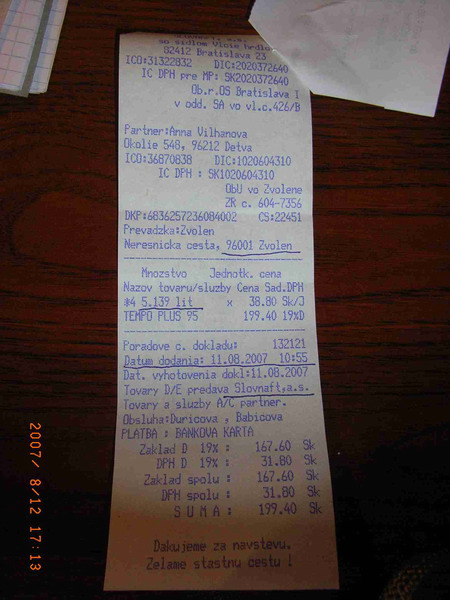 so sidlom Vlcie hrdlo
82412 Bratislava 23
ICO:31322832 DIC:2020372640
IC DPH pre MP: SK2020372640
Ob.r.OS Bratislava I
v odd. SA vo vl.c.426/B
Partner:Anna Vilhanova
Okolie 548, 96212 Detva
ICO:36870838 DIC:1020604310
IC DPH : SK1020604310
ObU vo Zvolene
ZR c. 604-7356
DKP:6836257236084002 CS:22451
Prevadzka:Zvolen
Neresnicka cesta, 96001 Zvolen
Mnozstvo Jednotk. cena
Nazov tovaru/sluzby Cena Sad.DPH
*4 5.139 lit x 38.80 Sk/J
TEMPO PLUS 95 199.40 19%D
Poradove c. dokladu: 132121
Datum dodania: 11.08.2007 10:55
Dat. vyhotovenia dokl:11.08.2007
Tovary D/E predava Slovnaft,a.s.
Tovary a sluzby A/C partner.
Obsluha:Duricova , Babicova
PLATBA : BANKOVA KARTA
Zaklad D 19% : 167.60 Sk
DPH D 19% : 31.80 Sk
Zaklad spolu : 167.60 Sk
DPH spolu : 31.80 Sk
S U M A : 199.40 Sk
Dakujeme za navstevu.
Zelame stastnu cestu !
2007/ 8/12 17:13